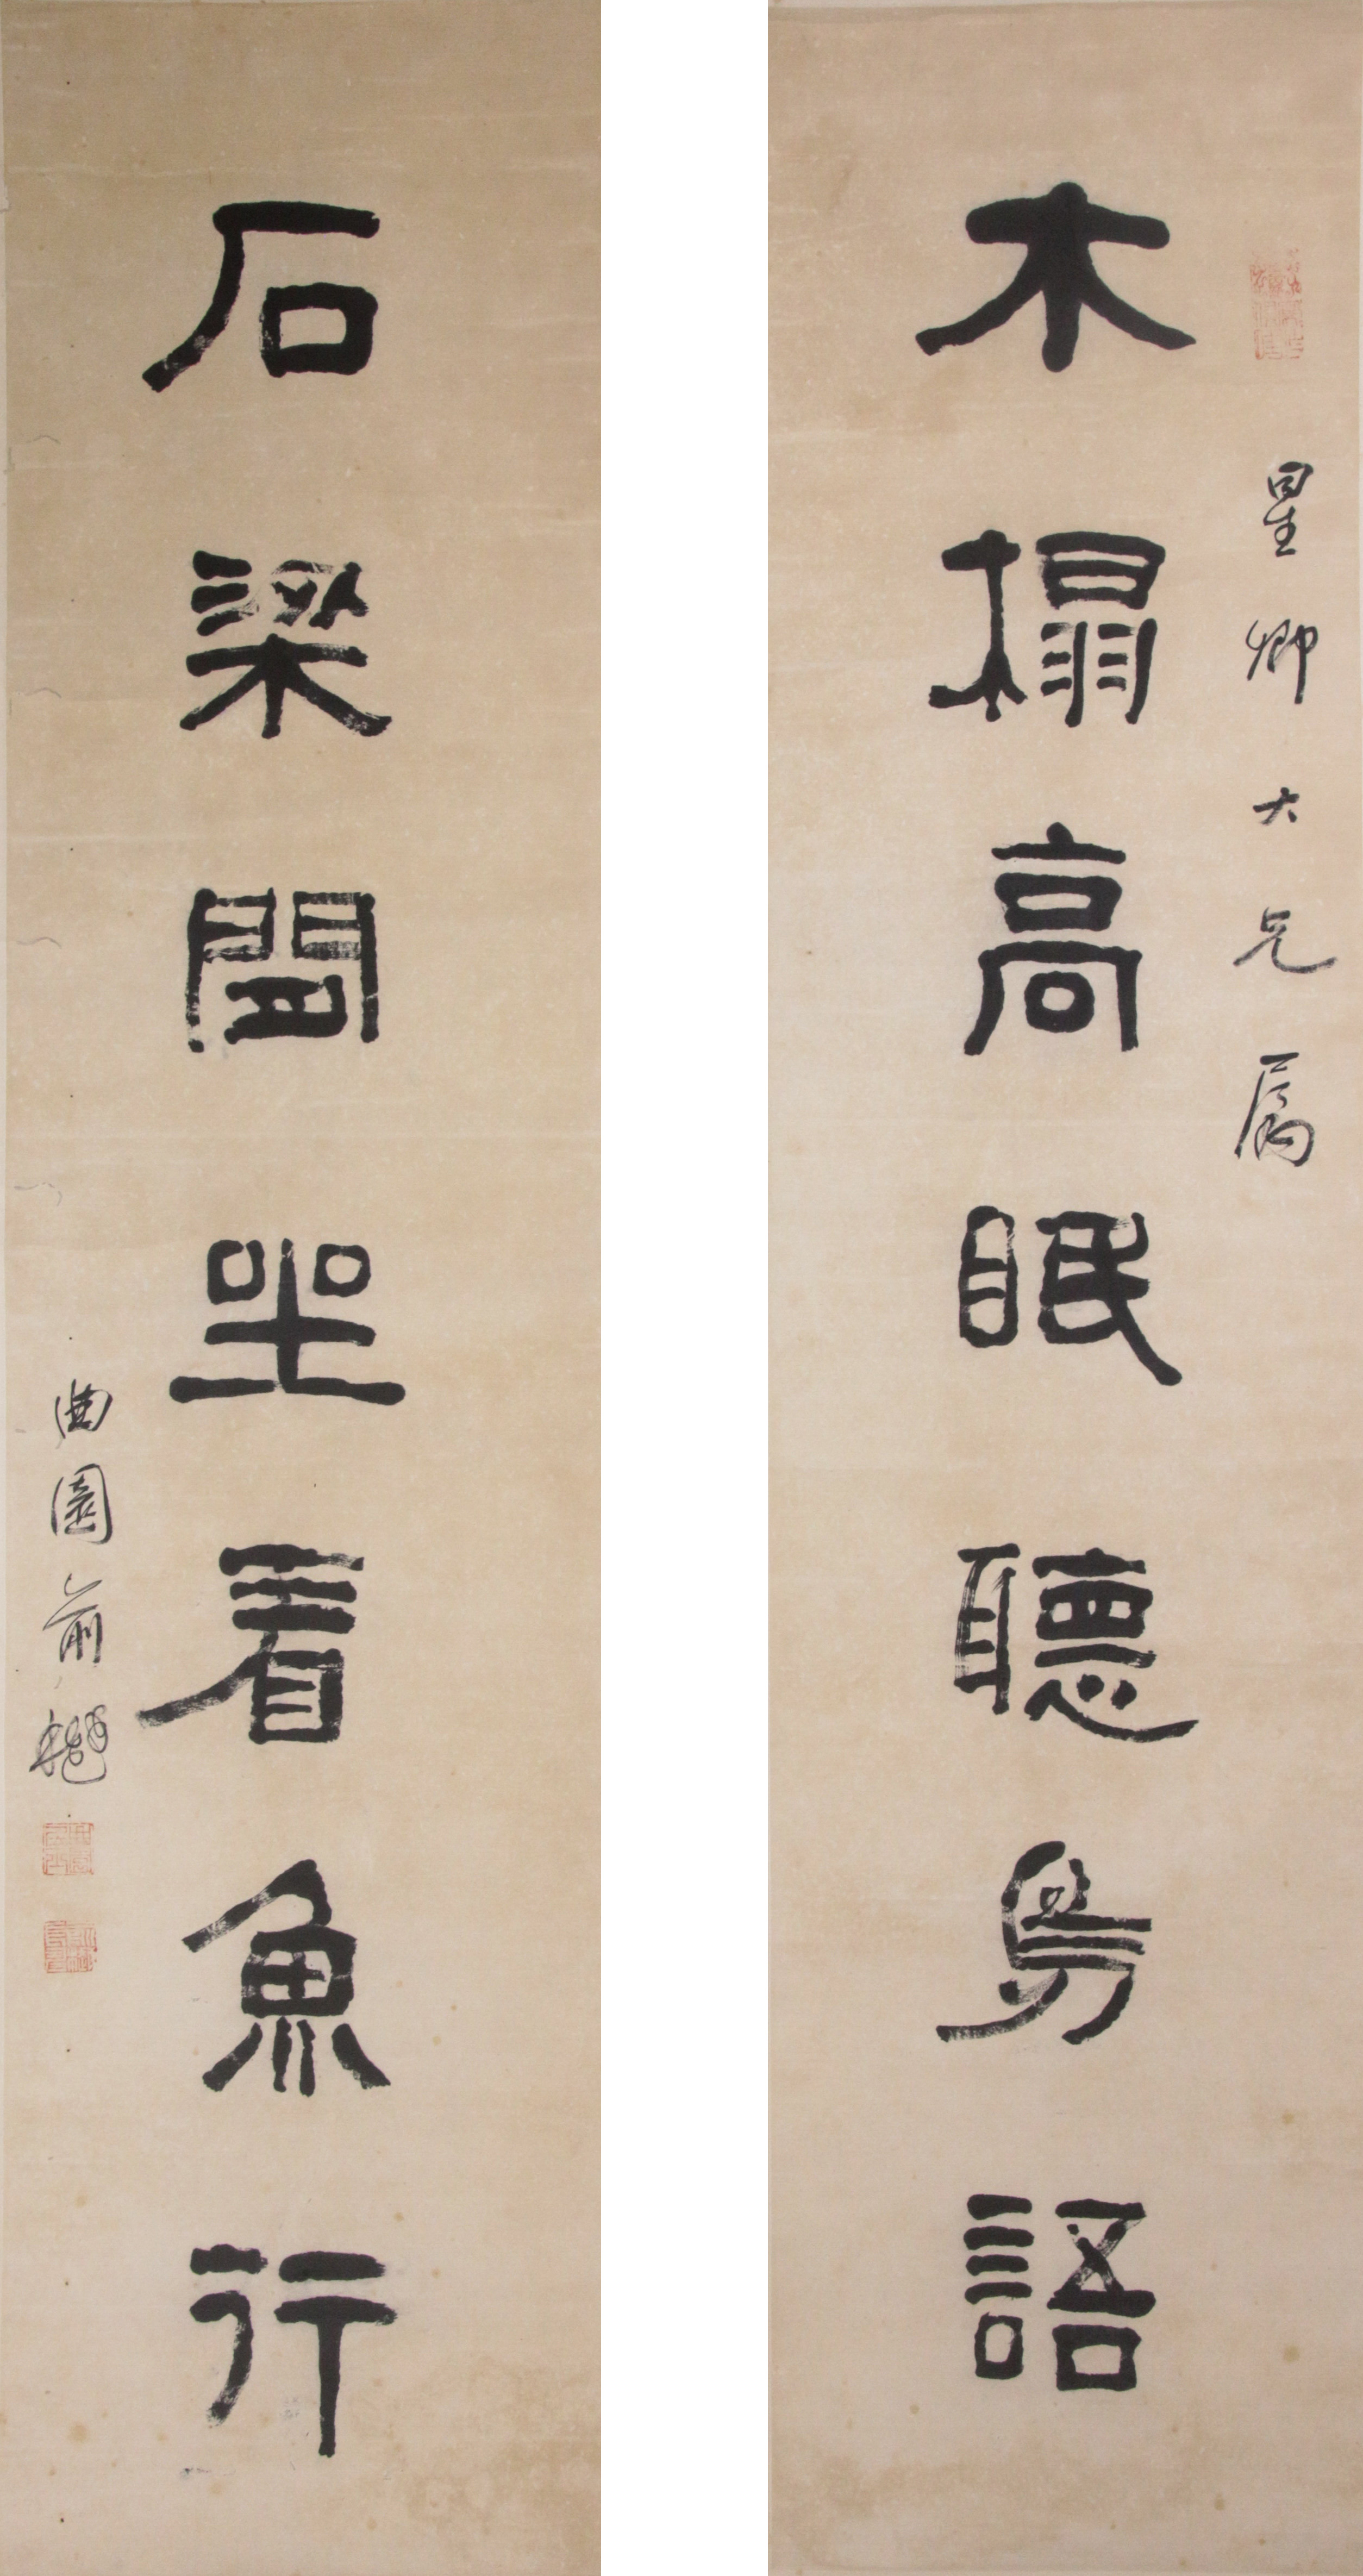 星卿大兄屬
木榻高眠聽鳥語
石梁閒坐看魚行
曲園俞樾